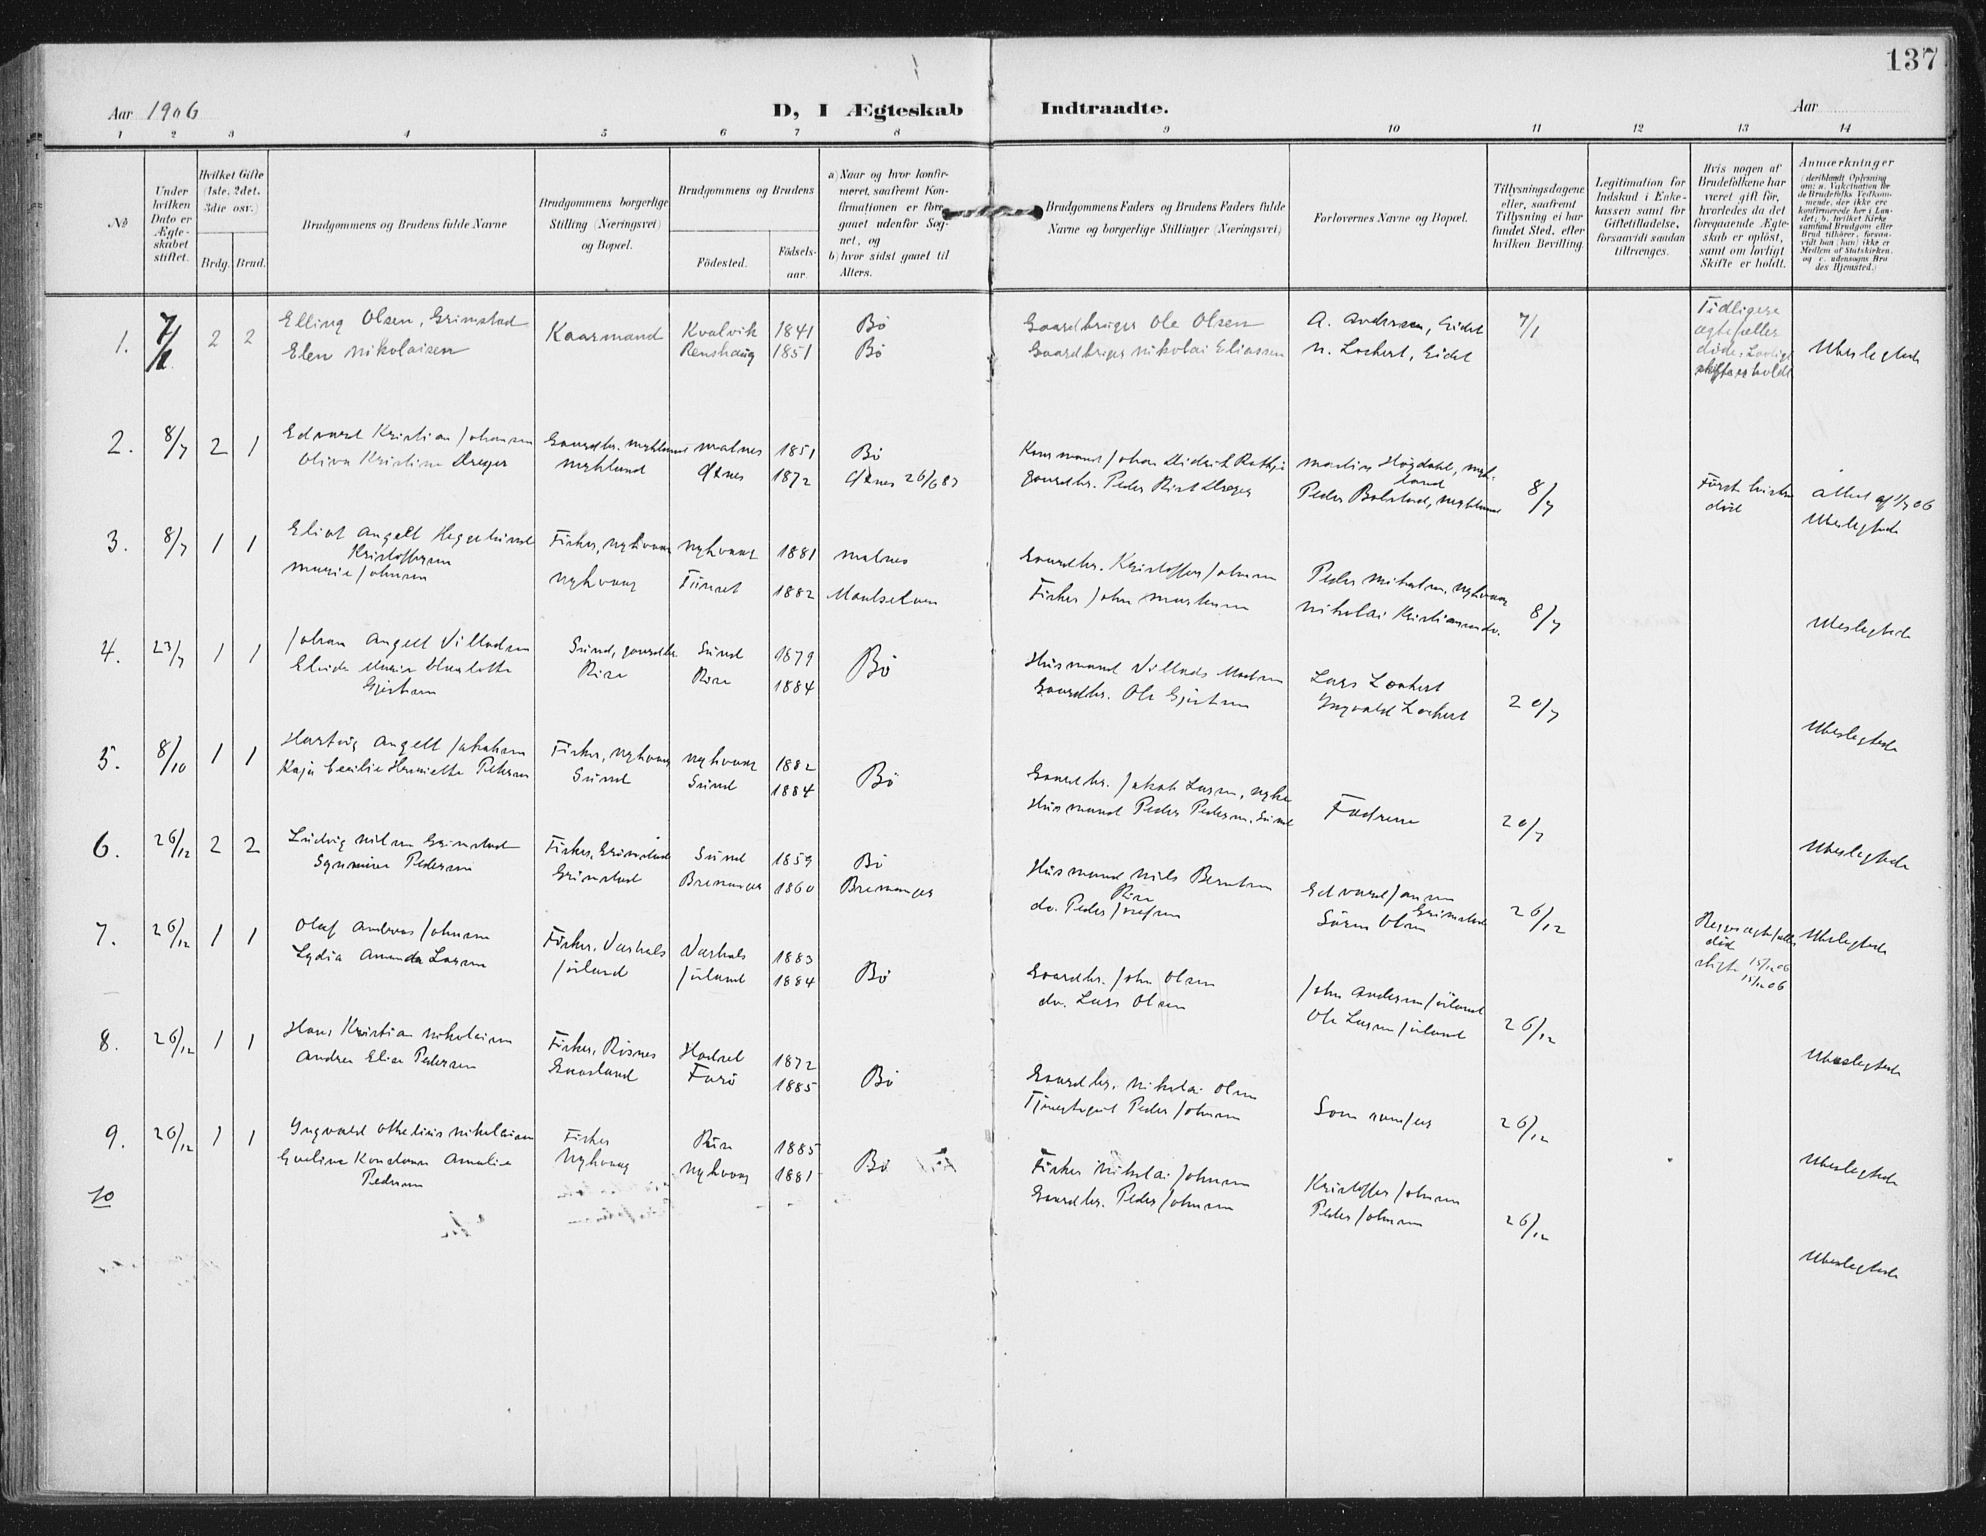 137
Aar 1906
D, I Ægteskab Indtraadte.
Aar
1 2 3 4 5 6 7 8 9 10 11 12 13 14
No
Under hvilken Dato er Ægteskabet stiftet.
Hvilket Gifte (1ste, 2det, 3die osv.)
Brdg. Brud.
Brudgommens og Brudens fulde Navne
Brudgommens borgerlige Stilling (Næringsvei) og Bopæl.
Brudgommens og Brudens
Fødested.
Fødselsaar.
a) Naar og hvor konfirmeret, saafremt Konfirmationen er foregaaet udenfor Sognet, og
b) hvor sidst gaaet til Alters.
Brudgommens Faders og Brudens Faders fulde Navne og borgerlige Stillinger (Næringsvei)
Forlovernes Navne og Bopæl.
Tillysningsdagene eller, saafremt Tillysning ei har fundet Sted, efter hvilken Bevilling.
Legitimation for Indskud i Enkekassen samt for Giftetilladelse, forsaavidt saadan tiltrænges.
Hvis nogen af Brudefolkene har været gift før, hvorledes da det foregaaende Ægteskab er opløst, samt om lovligt Skifte er holdt.
Anmærkninger
(deriblandt Oplysning om: a. Vakcination for de Brudefolks Vedkommende, der ikke ere konfirmerede her i Landet; b. hvilket Kirkesamfund Brudgom eller Brud tilhører, forsaavidt han (hun) ikke er Medlem af Statskirken, og c. udensogns Brudes Hjemsted.)
1. 7/1 2 2 Elling Olsen, Grimstad Kaarmand Kvalvik 1841 Bø Gaardbruger Ole Olsen A. Andersen, Eidet 7/1 Tidligere ægtefæller døde, Lovligt skifte er holdt
Elen Nikolaisen Renshaug 1851 Bø Gaardbruger Nikolai Eliassen N. Lockert, Eidet Ubeslegtede
2. 8/7 2 1 Edvard Kristian Johansen Gaardbr. Nykland Malnes 1851 Bø Kaarmand Johan Didrik
Oliva Kristine Dreyer Nykland 1872 26/6 87 Gaardbr. Peder Dreyer Peder Nykland 8/7 Første hustru død af 1/7 06
Ubeslegtede
3. 8/7 1 1 Eliot Angell Heggelund Kristoffersen Fisker, Nykvaag Nykvaag 1881 Malnes Gaardbr. Kristoffer Johnsen Peder Nykvaag
Marie Johnsen Nykvaag 1882 Maalselven Fisker John Nikolai 8/7
Ubeslegtede
4. 23/7 1 1 Johan Angell Villadsen Sund, gaardbr. Sund 1879 Bø Husmand Villads Madsen Lars Lockert
Elida Marie Charlotte Gjertsen Rise Rise 1884 Gaardbr. Ole Gjertsen Yngvald Lockert 20/7
Ubeslegtede
5. 8/10 1 1 Hartvig Angell Jakobsen Fisker, Nykvaag Nykvaag 1882 Bø Gaardbr. Jakob Larsen,
Kaja Cecilie Henriette Pedersen Sund Sund 1884 Husmand Peder Pedersen, Sund Fædrene 20/7
Ubeslegtede
6. 26/12 2 2 Ludvig Nilsen Grimstad Fisker, Grimstad Sund 1859 Bø Husmand Nils Berntsen Rise Edvard Jansen Grimstad
Pedersen Grimstad Bremanger 1860 Bremanger do. Peder Josefsen Søren Olsen 26/12
7. 26/12 1 1 Olaf Andreas Johnsen Fisker, Varhals Varhals 1883 Bø Begges ægtefæller død skifte 15/12 06 15/12 06 Ubeslegtede
Lydia Amanda Larsen Jørland Jørland 1884 Gaardbr. John Olsen John Andersen Jørland
do. Lars Olsen Ole Larsen Jørland 26/12
8. 26/12 1 1 Hans Kristian Nikolaisen Fisker, Risnes Hadsel 1872 Bø Ubeslegtede
Andrea Elise Pedersen Gaasland 1885 Gaardbr. Nikolai Olsen
Tjenestegut Peder Johnsen Som 26/12
9. 26/12 1 1 Yngvald Othelius Nikolaisen Fisker Rise 1885 Bø Ubeslegtede
Amalie Pedersen Nykvaag Nykvaag 1881 Fisker Nikolai Johnsen Kristoffer Johnsen
Gaardbr. Peder Johnsen Peder Johnsen 26/12
10
Ubeslegtede